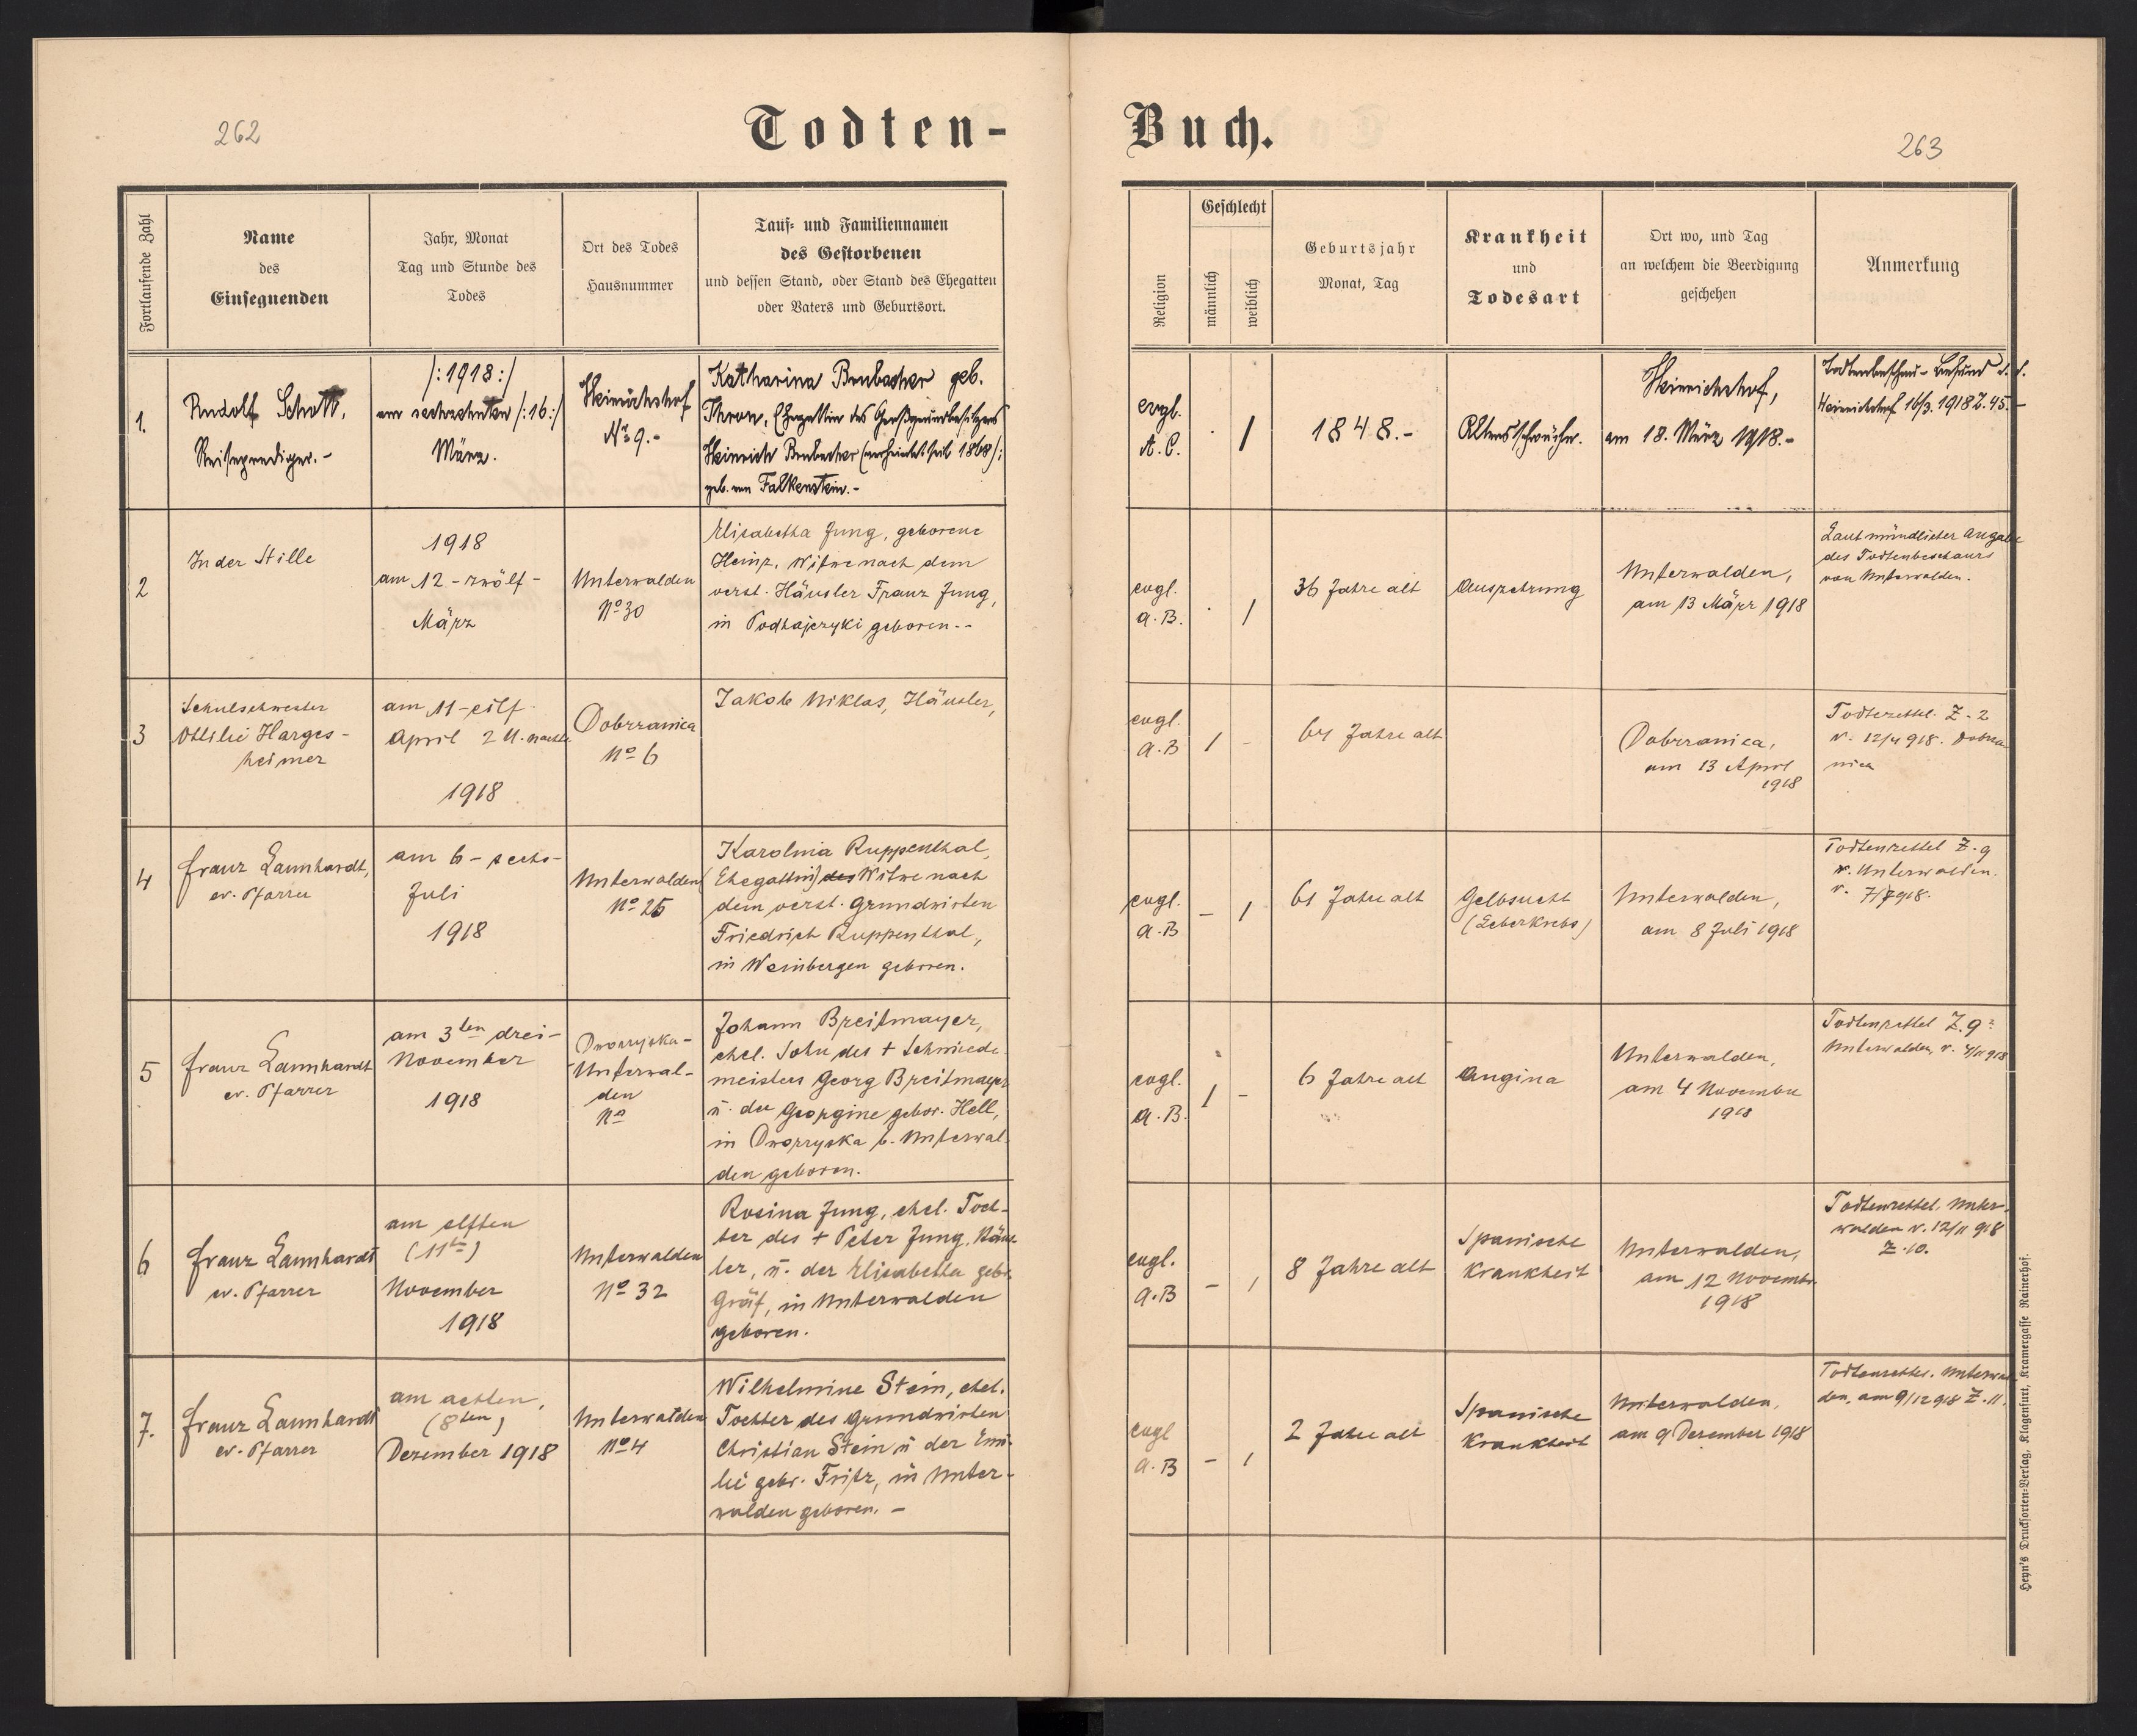 262
Todten-
Buch.
263
Fortlaufende Zahl
Name
des
Einsegnenden
Jahr, Monat
Tag und Stunde des
Todes
Ort des Todes
Hausnummer
Tauf- und Familiennamen
des Gestorbenen
und dessen Stand, oder Stand des Ehegatten
oder Vaters und Geburtsort.
Religion
Geschlecht
männlich
weiblich
Geburtsjahr
Monat, Tag
Krankheit
und
Todesart
Ort wo, und Tag
an welchem die Beerdigung
geschehen
Anmerkung
1.
Rudolf Schott,
Reiseprediger.-
/:1918:/
am sechzehnten /:16:/
März.
Heinrichshof
No 9.-
Katharina Brubacher geb.
Thron, Ehegattin des Großgrundbesitzers
Heinrich Brubacher (verheiratet seit 1868):
geb. von Falkenstein.-
evgl.
A. C.
· /
1848.-
Altersschwäche.
Heinrichshof,
am 18. März 1918.-
Todtenbeschau-Befund
Heinrichshof 16/3. 1918 Z. 45.-
2
In der Stille
1918
am 12 - zwölf -
März
Unterwalden
No 30
Elisabetha Jung, geborene
Heinz, Witwe nach dem
verst. Häusler Franz Jung,
in Podhajczyki geboren.-
evgl.
A.B.
· /
36 Jahre alt
Auszehrung
Unterwalden,
am 13 März 1918
Laut mündlicher Angabe
des Todtenbeschauers
von Unterwalden.
3
Schulschwester
Ottilie Harges-
heimer
am 11-eilf-
April 2 U. nachts
1918
Dobrzanica
No 6
Jakob Niklas, Häusler,
evgl.
A.B
/ -
64 Jahre alt
Dobrzanica,
am 13 April
1918
Todtenzettel. Z. 2
v. 12/4 918. Dobrza
nica
4
Franz Lannhardt,
ev. Pfarrer
am 6 - sechs-
Juli
1918
Unterwalden
No 25
Karolina Ruppenthal,
(Ehegattin) des Witwe nach
dem verst. Grundwirten
Friedrich Ruppenthal,
in Weinbergen geboren.
evgl.
A.B
- /
61 Jahre alt
Gelbsucht
(Leberkrebs)
Unterwalden,
am 8 Juli 1918
Todtenzettel Z. 9
v. Unterwalden.
v. 7/7 918.
5
Franz Lannhardt
ev. Pfarrer
am 3ten drei-
November
1918
Dworzyska-
Unterwal-
den
No
Johann Breitmayer,
ehel. Sohn des + Schmiede-
meisters Georg Breitmayer
u. der Georgine gebor. Hell,
in Dworzyska b. Unterwal-
den geboren.
evgl.
A.B.
/ -
6 Jahre alt
Angina
Unterwalden,
am 4 November
1918
Todtenzettel Z. 9
Unterwalden, v. 4/11 918
6
Franz Lannhardt
ev. Pfarrer
am elften
(11ten)
November
1918
Unterwalden
No 32
Rosina Jung, ehel. Toch-
ter des + Peter Jung, Häus-
ler, u. der Elisabetha gebr.
Gräf, in Unterwalden
geboren.
evgl.
A.B
- /
8 Jahre alt
Spanische
Krankheit
Unterwalden,
am 12 November
1918
Todtenzettel. Unter-
walden v. 12/11 918
Z. 10.
7.
Franz Lannhardt
ev. Pfarrer
am achten,
(8ten)
Dezember 1918
Unterwalden
No 4
Wilhelmine Stein, ehel.
Tochter des Grundwirten
Christian Stein u der Emi-
lie gebr. Fritz, in Unter-
walden geboren. -
evgl
A.B
- /
2 Jahre alt
Spanische
Krankheit
Unterwalden,
am 9 Dezember 1918
Todtenzettel. Unterwal
den, am 9/12 918 Z. 11.
Heyn's Drucksorten-Verlag, Klagenfurt, Kramergasse Rainerhof.